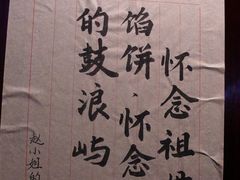 怀念祖母
馅饼、怀念
的鼓浪屿
赵小姐的